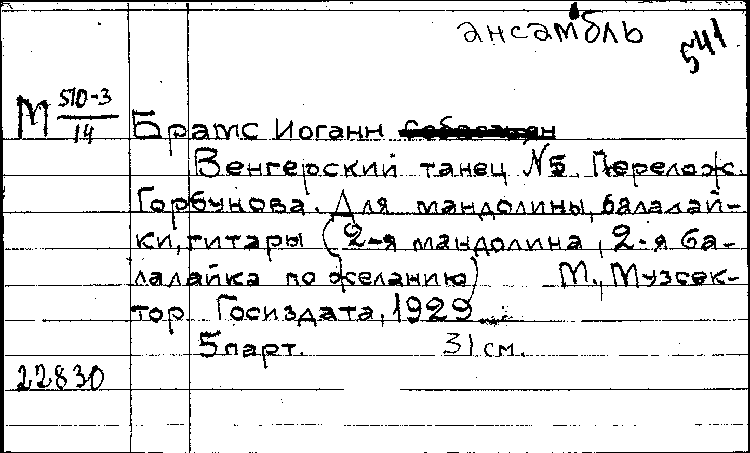 ансамбль
541
М 510-3/14
Брамс Иоганн Себастьян
Венгерский танец №5. Перелож.
Горбунова. Для мандолины, балалай-
ки, гитары (2-я мандолина, 2-я ба-
лалайка по желанию) М., Музсек-
тор Госиздата, 1929
5 парт. 31 см.
22830